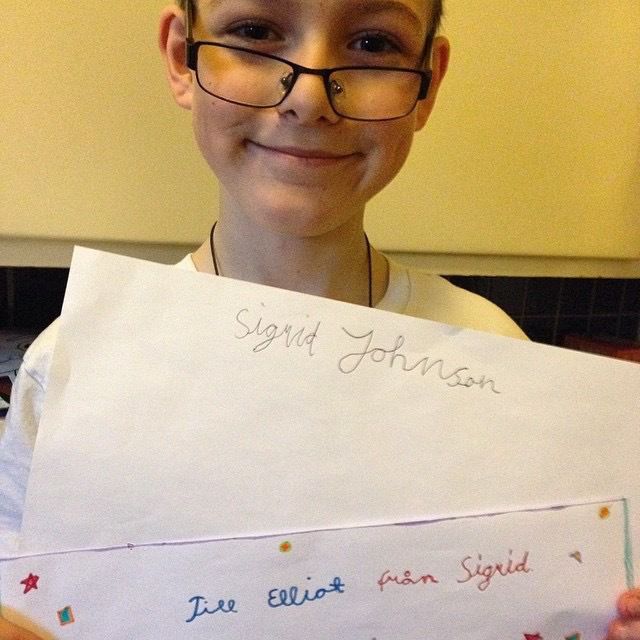 Sigrid Johnson
Till Elliot från Sigrid